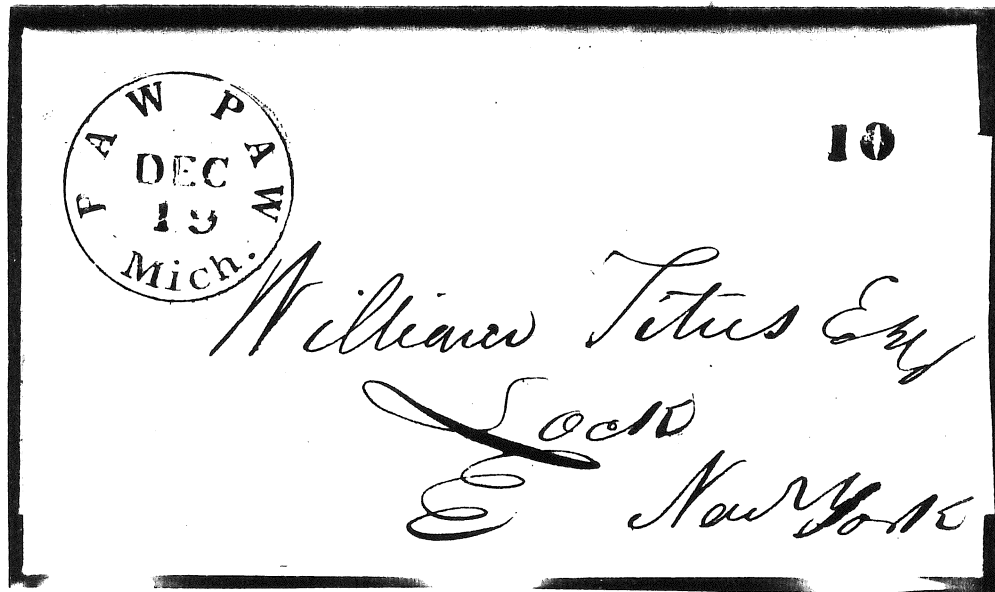 PAW PAW
DEC
19
Mich.
10
William Titus Esq
Lock
New York